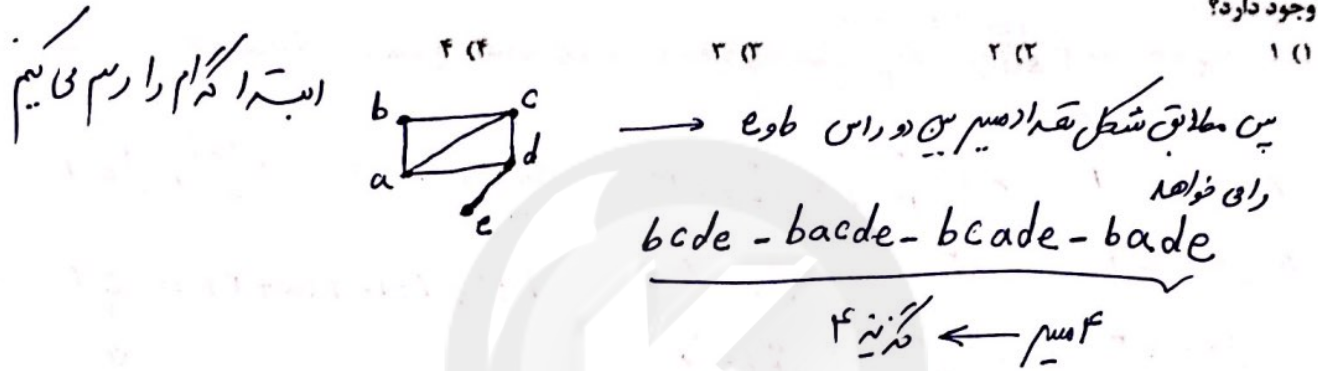 وجود دارد؟
۱) ۱ ۲) ۲ ۳) ۳ ۴) ۴
ابتدا گراف را رسم می کنیم
b c
a d
e
پس مطابق شکل تعداد مسیر بین دو راس b و e
را می خواهد
bcde - bacde - bcade - bade
۴ مسیر ← گزینه ۴